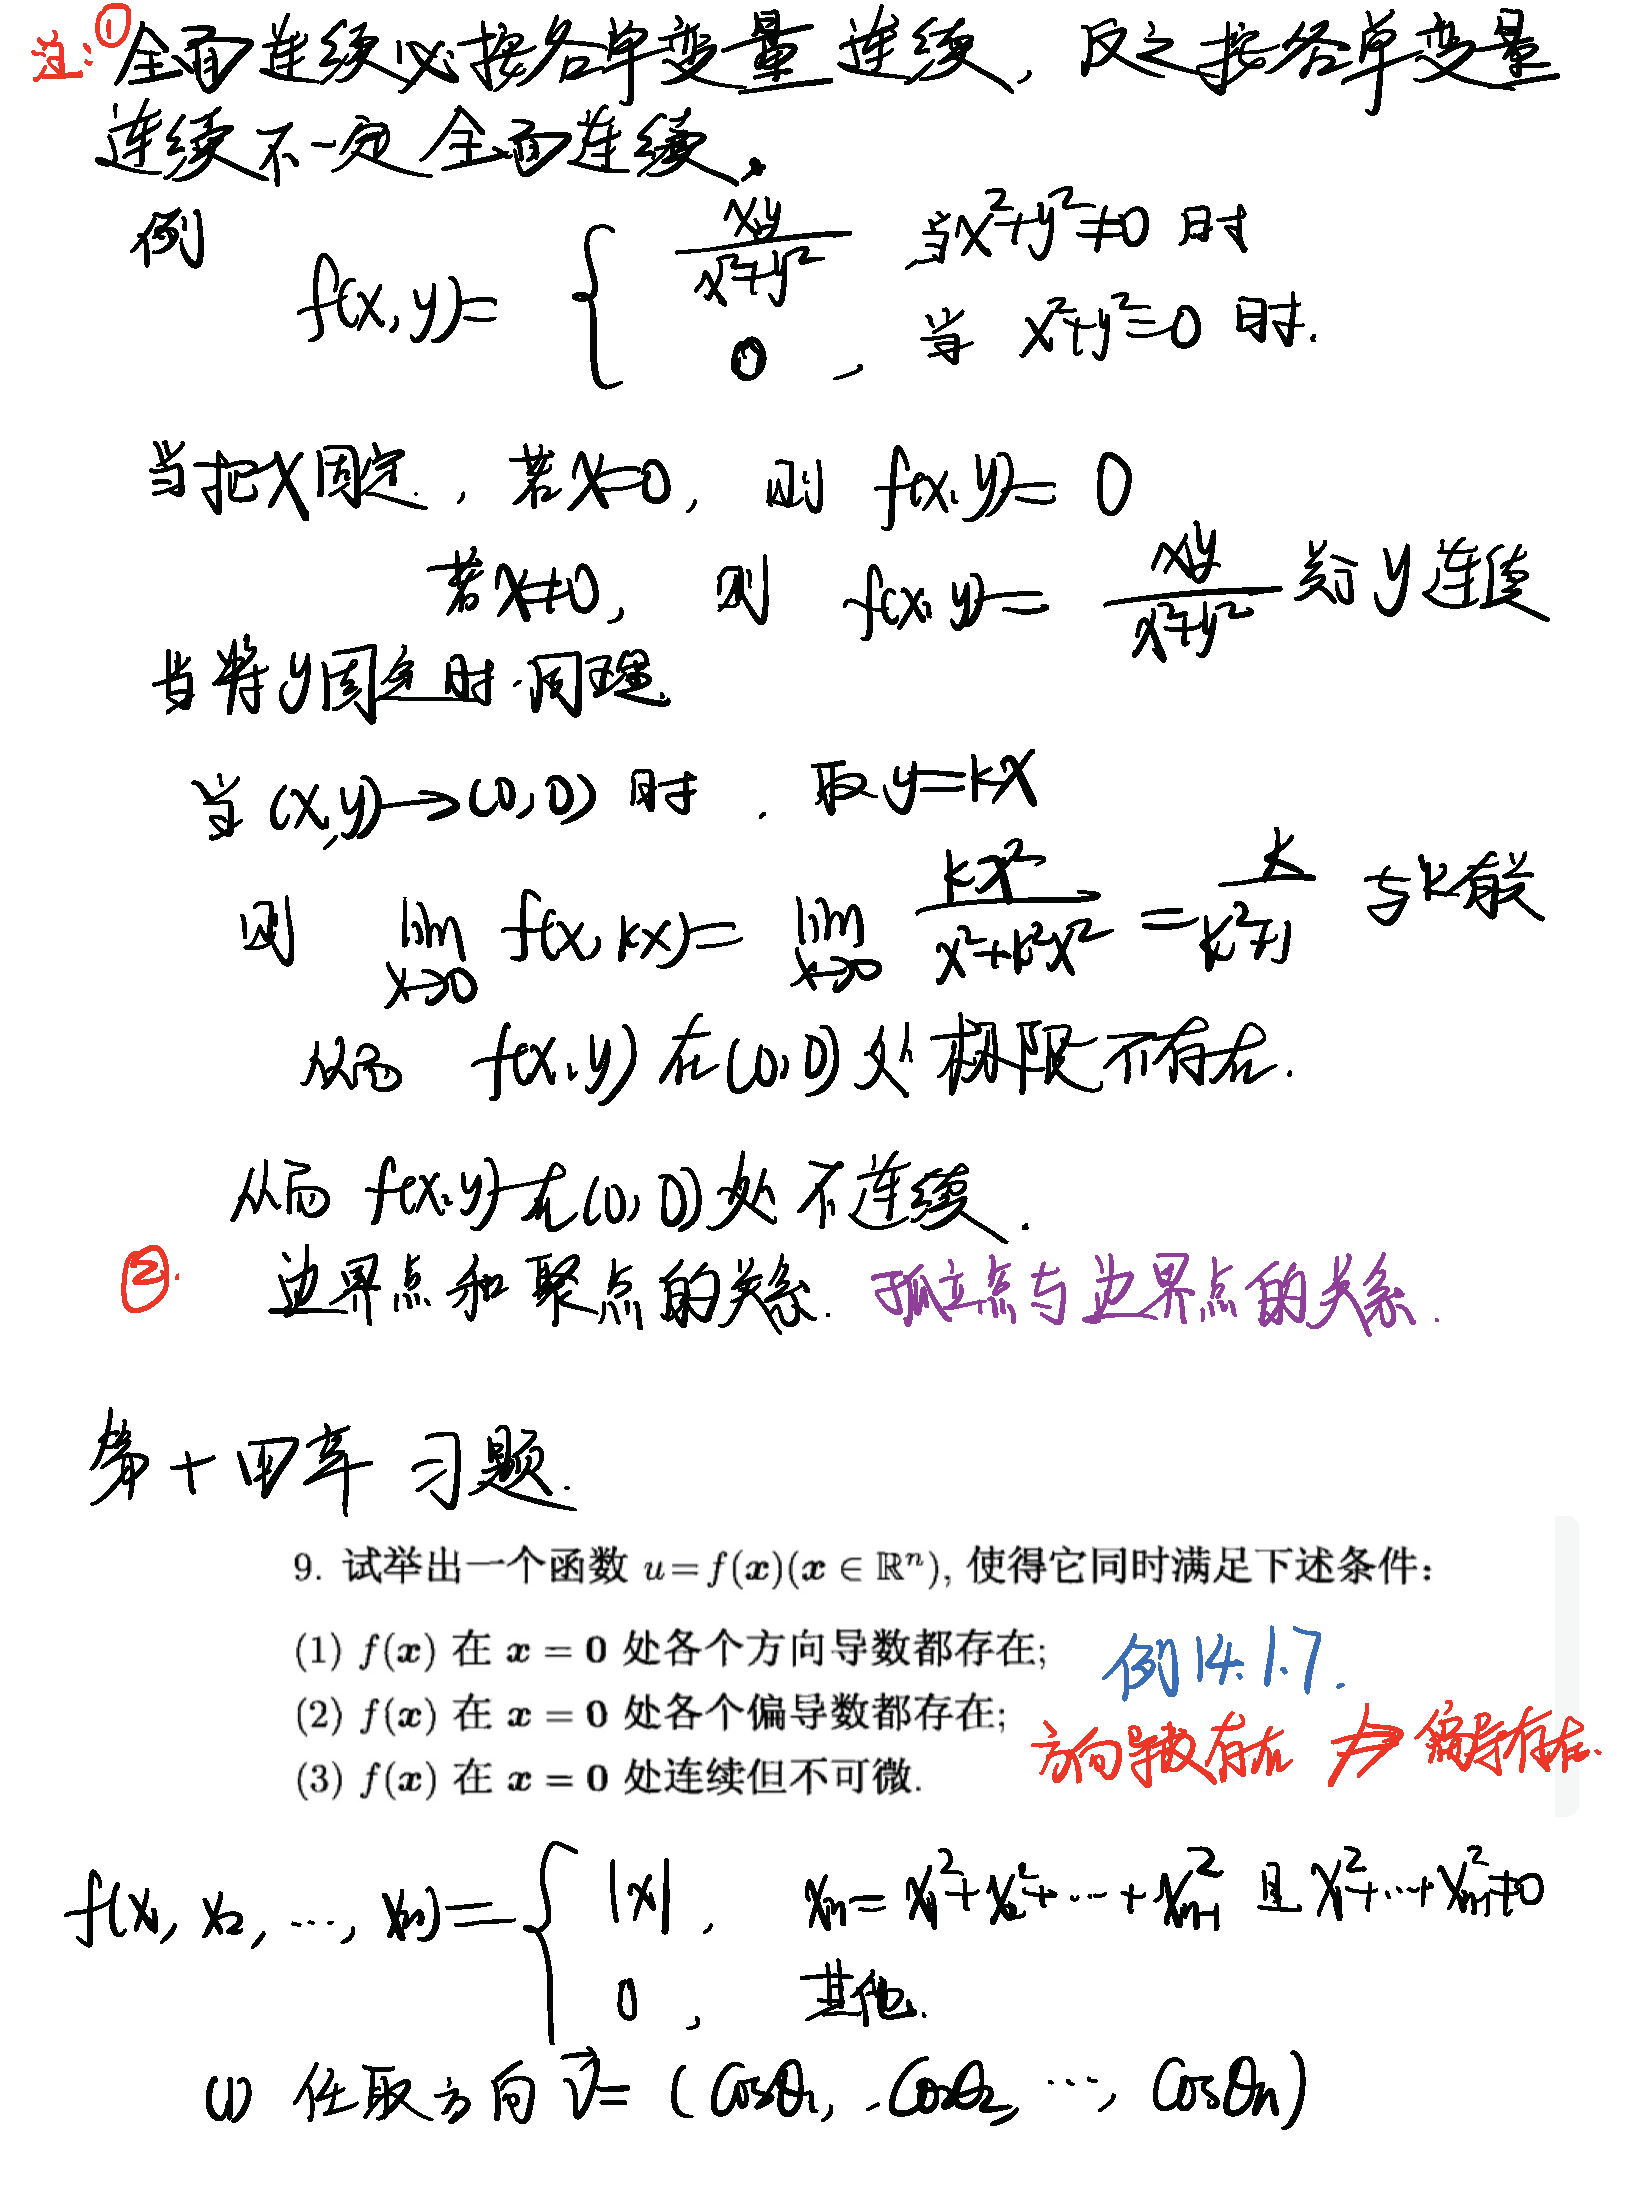 注:① 全面连续必按各单变量连续，反之按各单变量
连续不一定全面连续.
例 f(x,y)= { xy/(x²+y²) 当x²+y²≠0时
0 , 当 x²+y²=0 时.
当把x固定., 若x=0, 则 f(x,y)= 0
若x≠0, 则 f(x,y)= xy/(x²+y²) 关于y连续
当将y固定时.同理.
当(x,y)→(0,0)时. 取y=kx
则 lim_{x→0} f(x,kx)= lim_{x→0} kx²/(x²+k²x²) = k/(k²+1) 与k有关
从而 f(x,y)在(0,0)处极限不存在.
从而 f(x,y)在(0,0)处不连续.
②. 边界点和聚点的关系. 孤立点与边界点的关系.
第十四章 习题.
9. 试举出一个函数 u=f(x)(x∈ℝⁿ), 使得它同时满足下述条件:
(1) f(x) 在 x = 0 处各个方向导数都存在; 例14.1.7.
(2) f(x) 在 x = 0 处各个偏导数都存在;
方向导数存在 ⇏ 偏导存在.
(3) f(x) 在 x = 0 处连续但不可微.
f(x₁, x₂, ⋯, xₙ)= { |x| , xₙ= x₁²+x₂²+⋯+xₙ₋₁² 且 x₁²+⋯+xₙ₋₁²≠0
0 , 其他.
(1) 任取方向 v⃗= (cosθ₁, cosθ₂, ⋯, cosθₙ)